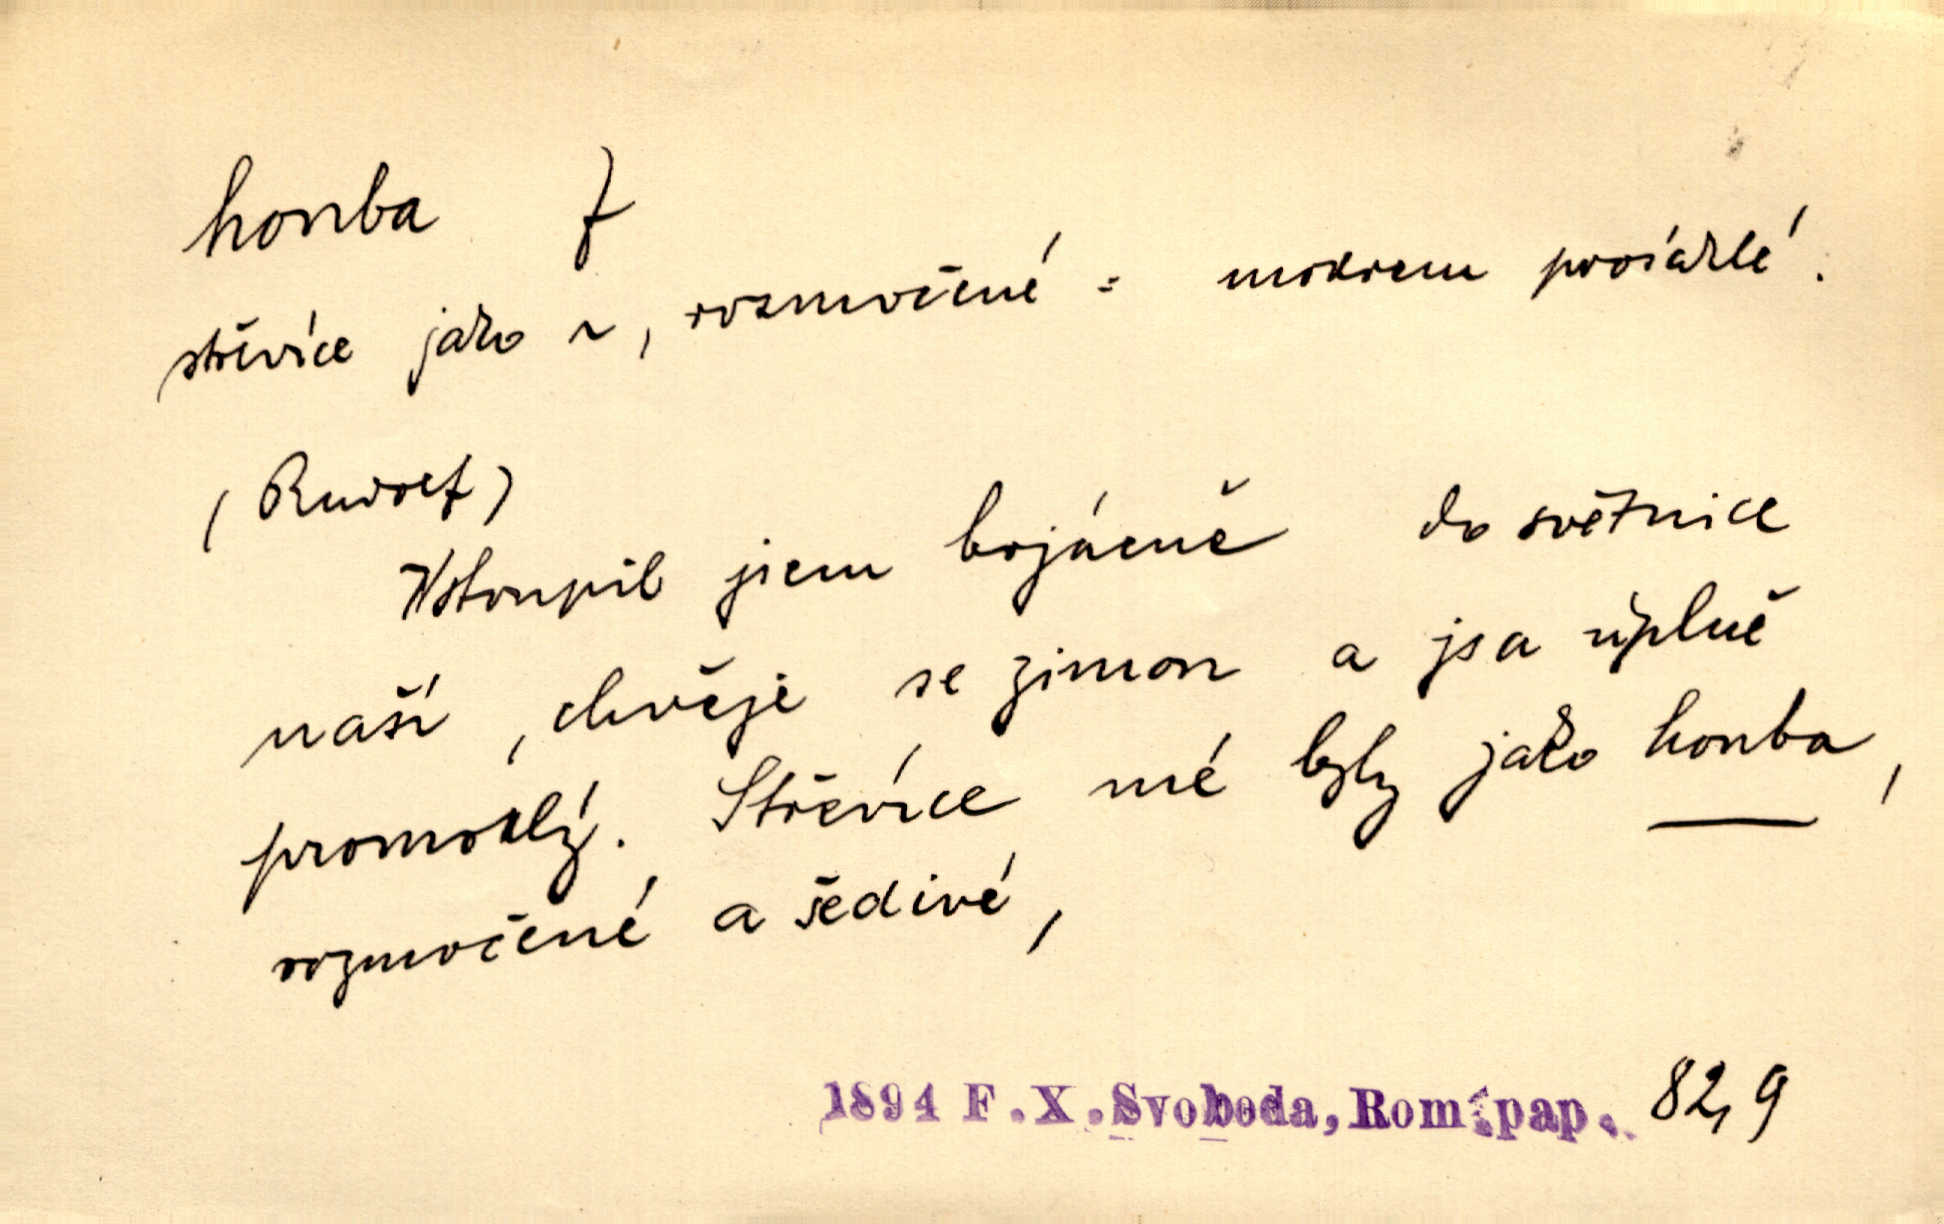 houba f
střevíce jako ~, rozmočené = mokrem prosáklé.
(Rudolf)
Vstoupil jsem bojácně do světnice
naší, chvěje se zimou a jsa úplně
promoklý. Střevíce mé byly jako houba,
rozmočené a šedivé,
1894 F.X.Svoboda, Rom.pap. 82, 9